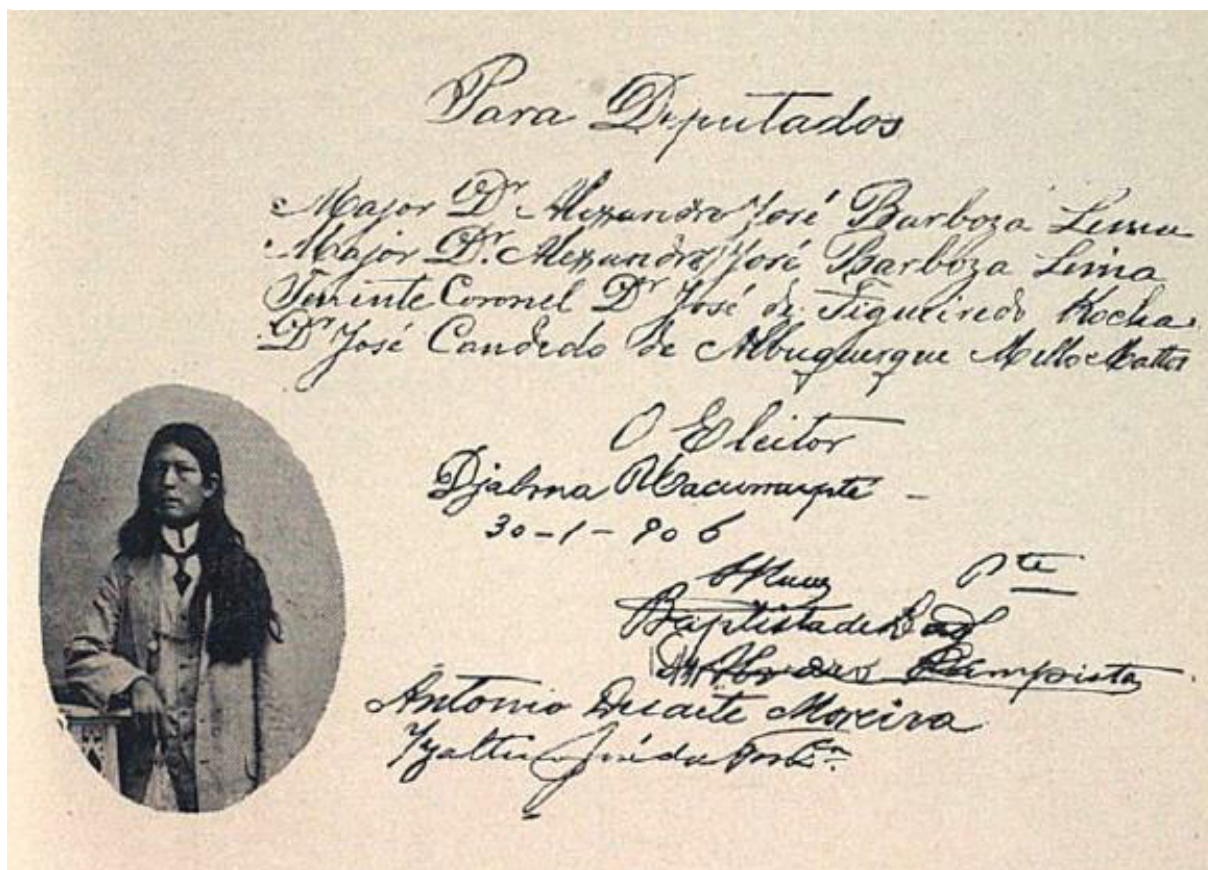 Para Deputados
Major Dr Alexandre José Barboza Lima
Major Dr. Alexandre José Barboza Lima
Tenente Coronel Dr José de Figueiredo Rocha
Dr José Candedo de Albuquerque Mello Mattos
O Eleitor
Djalma
30-1-906
Pte
Baptista de
Antonio Duarte Moreira